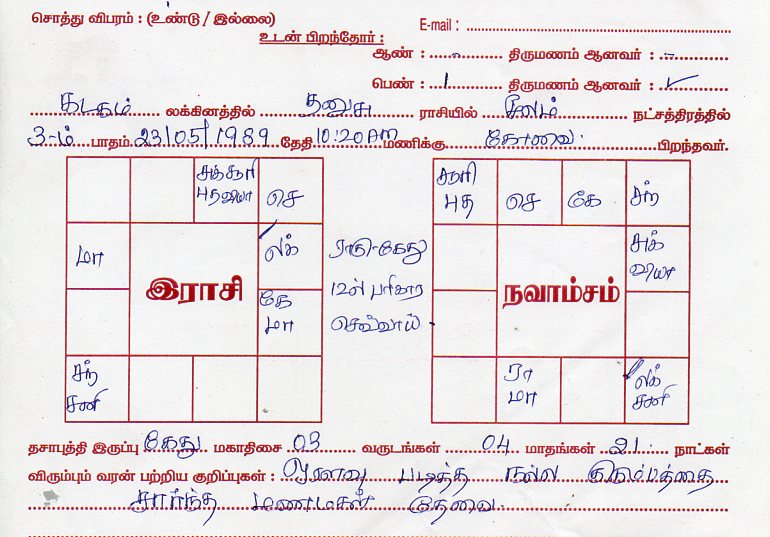 சொத்து விபரம் : (உண்டு / இல்லை)
E-mail :
உடன் பிறந்தோர் :
ஆண் : - திருமணம் ஆனவர் : -
பெண் : 1 திருமணம் ஆனவர் : ✓
கடகம் லக்கினத்தில் தனுசு ராசியில் மூலம் நட்சத்திரத்தில்
3-ம் பாதம் 23/05/1989 தேதி 10:20 am மணிக்கு கோவை பிறந்தவர்.
செ
செ கே சந்
மா லக்
இராசி
ராகு-கேது
12ல் பரிகார
செவ்வாய்
கே
மா
நவாம்சம்
சந்
சனி
ரா
மா
லக்
சனி
தசாபுத்தி இருப்பு கேது மகாதிசை 03 வருடங்கள் 04 மாதங்கள் 21 நாட்கள்
விரும்பும் வரன் பற்றிய குறிப்புகள் : ஓரளவு படித்த நல்ல குடும்பத்தை
சார்ந்த மணமகன் தேவை